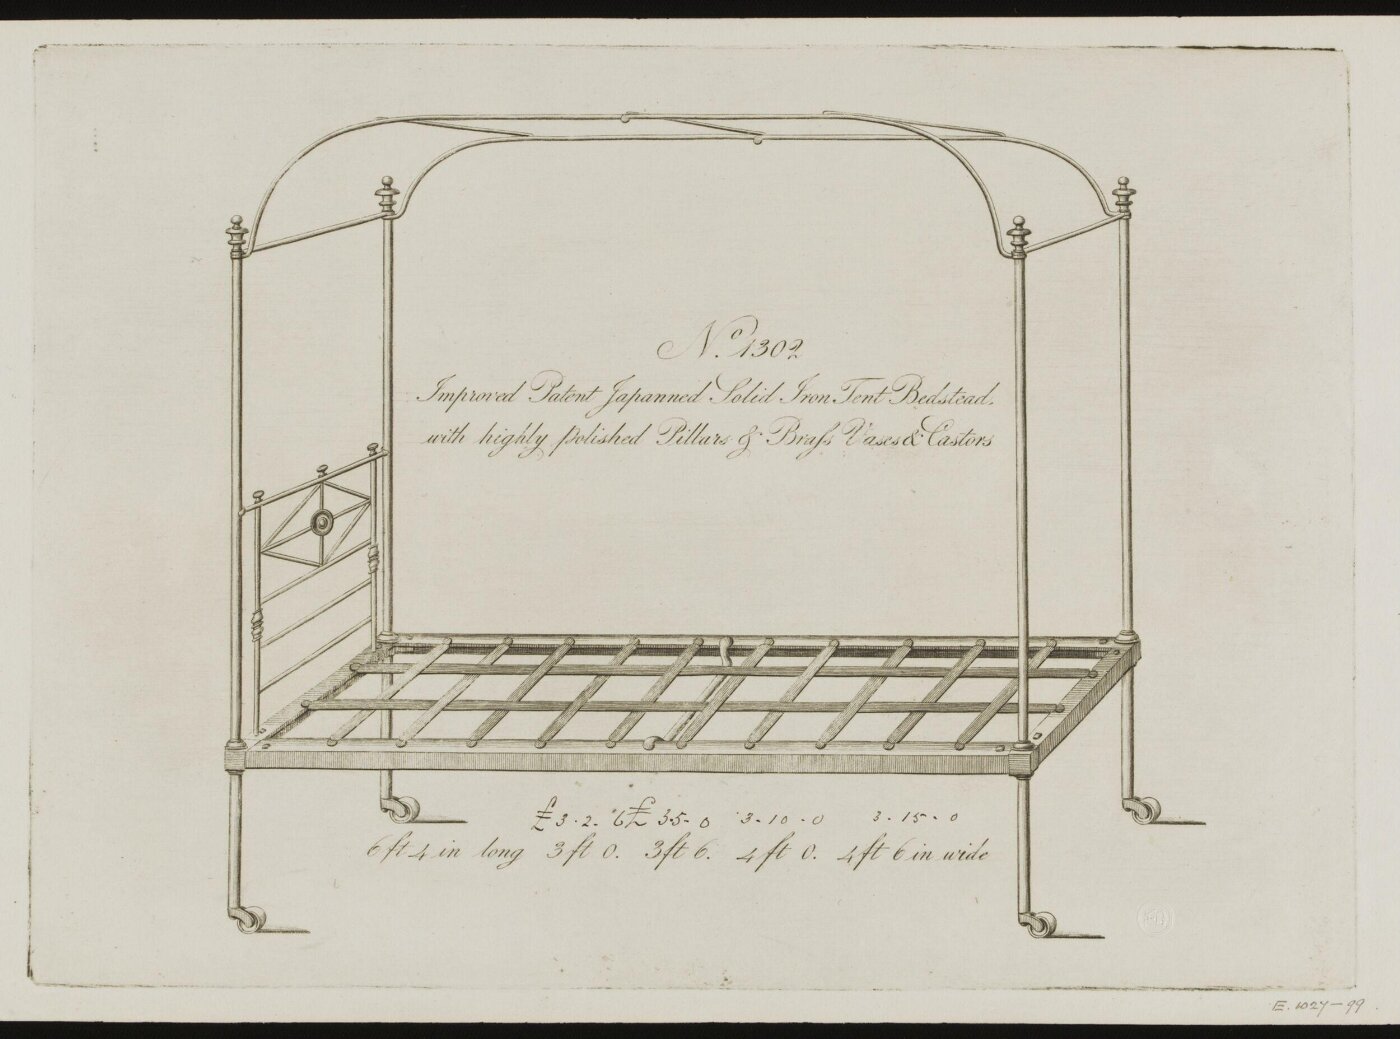 No. 1302
Improved Patent Japanned Solid Iron Tent Bedstead.
with highly polished Pillars & Braſs Vases & Castors
£3.2.6 £3.5.0 3.10.0 3.15.0
6 ft 4 in long 3 ft 0. 3 ft 6. 4 ft 0. 4 ft 6 in wide
E. 1027-99